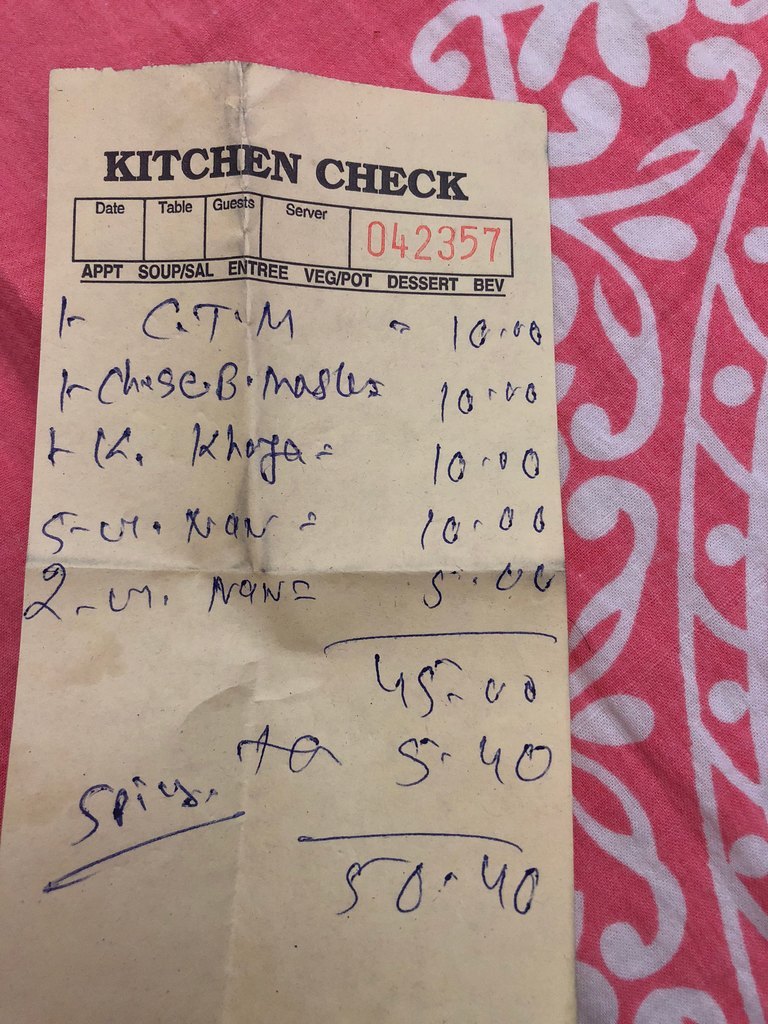 KITCHEN CHECK
Date Table Guests Server 042357
APPT SOUP/SAL ENTREE VEG/POT DESSERT BEV
1- C.T.M = 10.00
1- B. 10.00
1- K. = 10.00
5- NAN = 10.00
2- NAN = 5.00
45.00
5.40
50.40